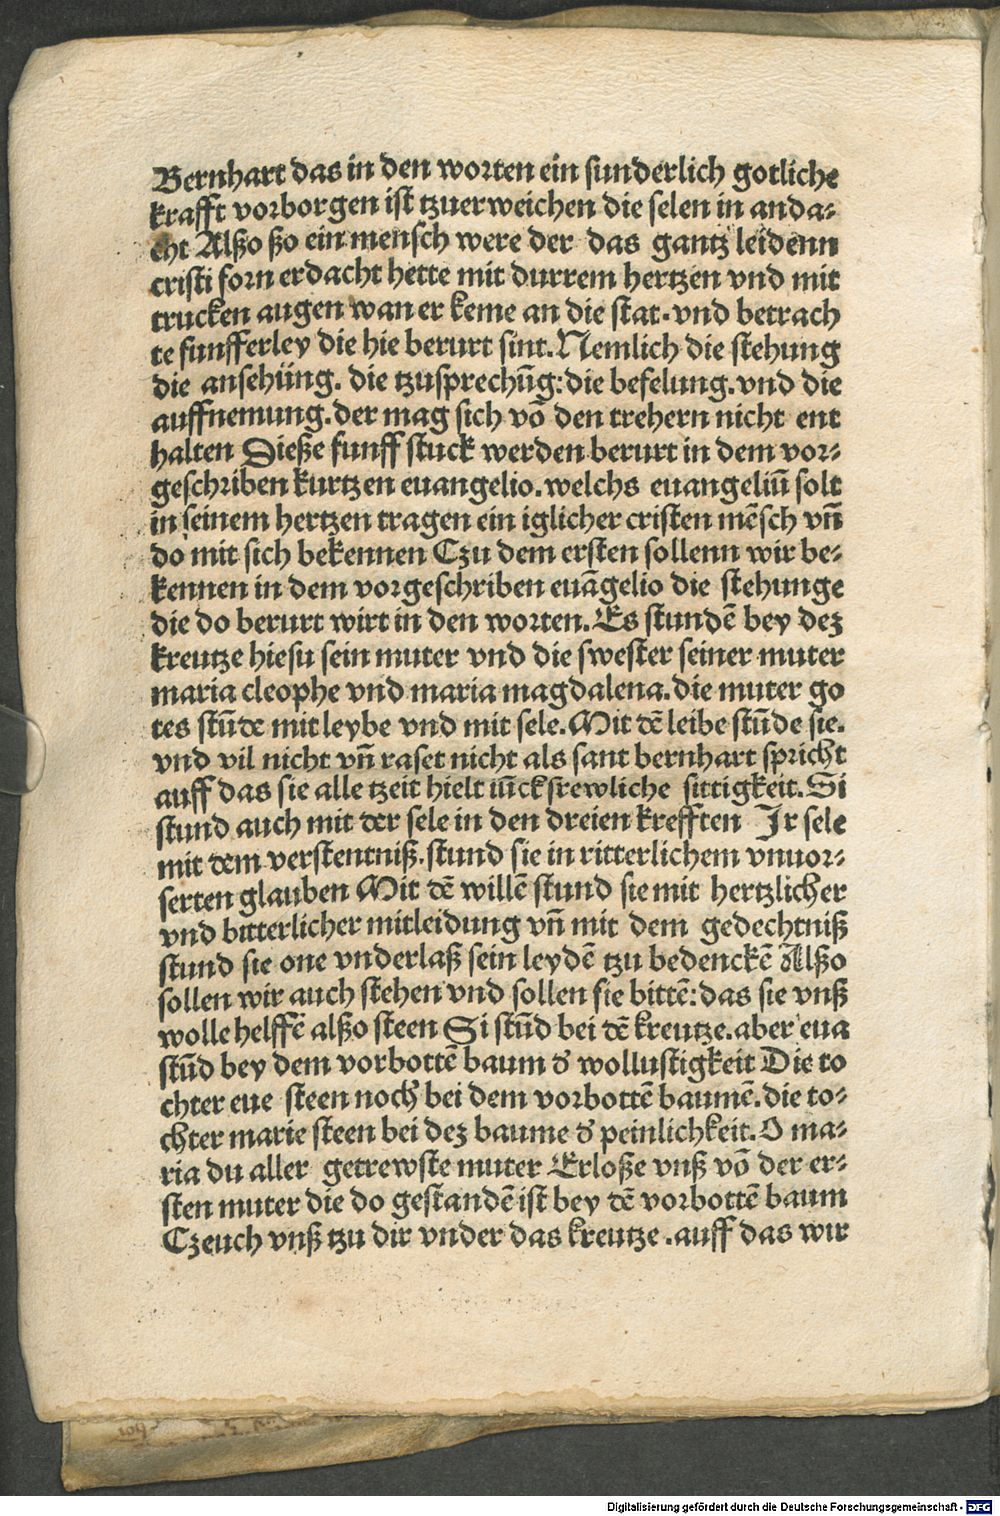 Bernhart das in den worten ein sunderlich gotliche
krafft vorborgen ist tzuerweichen die selen in anda⸗
cht Alßo ßo ein mensch were der das gantz leidenn
cristi forn erdacht hette mit durrem hertzen vnd mit
trucken augen wan er keme an die stat. vnd betrach
te funfferley die hie berurt sint. Nemlich die stehung
die ansehung. die tzusprechūg: die befelung. vnd die
auffnemung. der mag sich vō den trehern nicht ent
halten Dieße funff stuck werden berurt in dem vor⸗
geschriben kurtzen euangelio. welchs euangeliū solt
in seinem hertzen tragen ein iglicher cristen mēsch vn̄
do mit sich bekennen Czu dem ersten sollenn wir be⸗
kennen in dem vorgeschriben euāgelio die stehunge
die do berurt wirt in den worten. Es stundē bey dez
kreutze hiesu sein muter vnd die swester seiner muter
maria cleophe vnd maria magdalena. die muter go
tes stūde mit leybe vnd mit sele. Mit dē leibe stūde sie.
vnd vil nicht vn̄ raset nicht als sant bernhart spricht
auff das sie alle tzeit hielt iūcksrewliche sittigkeit. Si
stund auch mit der sele in den dreien krefften Ir sele
mit dem verstentniß. stund sie in ritterlichem vnuor⸗
serten glauben Mit dē willē stund sie mit hertzlicher
vnd bitterlicher mitleidung vn̄ mit dem gedechtniß
stund sie one vnderlaß sein leydē tzu bedenckē Alßo
sollen wir auch stehen vnd sollen sie bittē: das sie vnß
wolle helffē alßo steen Si stūd bei dē kreutze. aber eua
stūd bey dem vorbottē baum d᷑ wollustigkeit Die to
chter eue steen noch bei dem vorbottē baumē. die to⸗
chter marie steen bei dez baume d᷑ peinlichkeit. O ma⸗
ria du aller getrewste muter Erloße vnß vō der er⸗
sten muter die do gestandē ist bey dē vorbottē baum
Czeuch vnß tzu dir vnder das kreutze. auff das wir
Digitalisierung gefördert durch die Deutsche Forschungsgemeinschaft - DFG